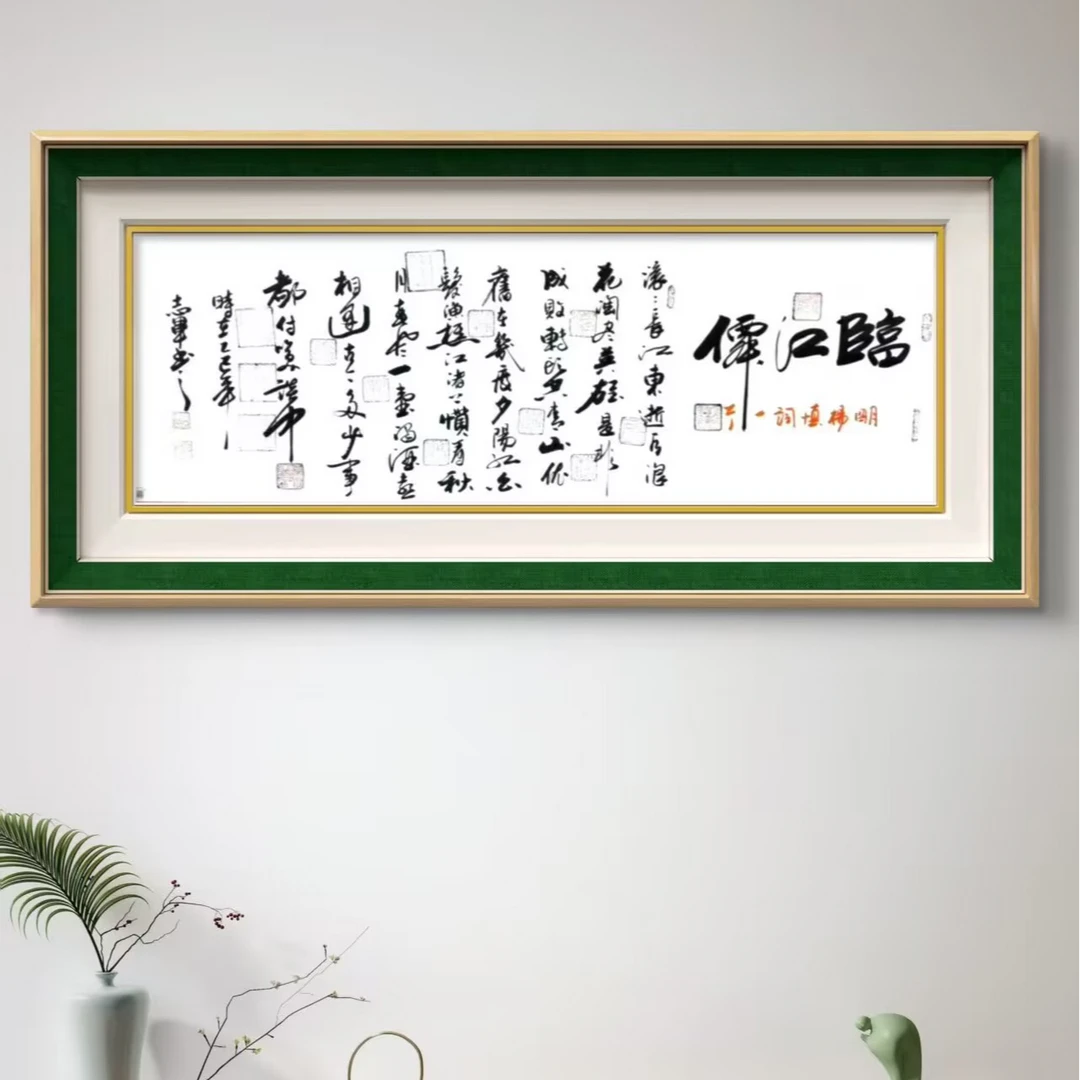 臨江僊
明楊慎詞一
滚滚長江東逝水浪
花淘盡英雄是非
成敗轉頭空青山依
舊在幾度夕陽紅白
髮漁樵江渚上慣看秋
月春風一壺濁酒喜
相逢古今多少事
都付笑談中
時在乙巳年
志軍書